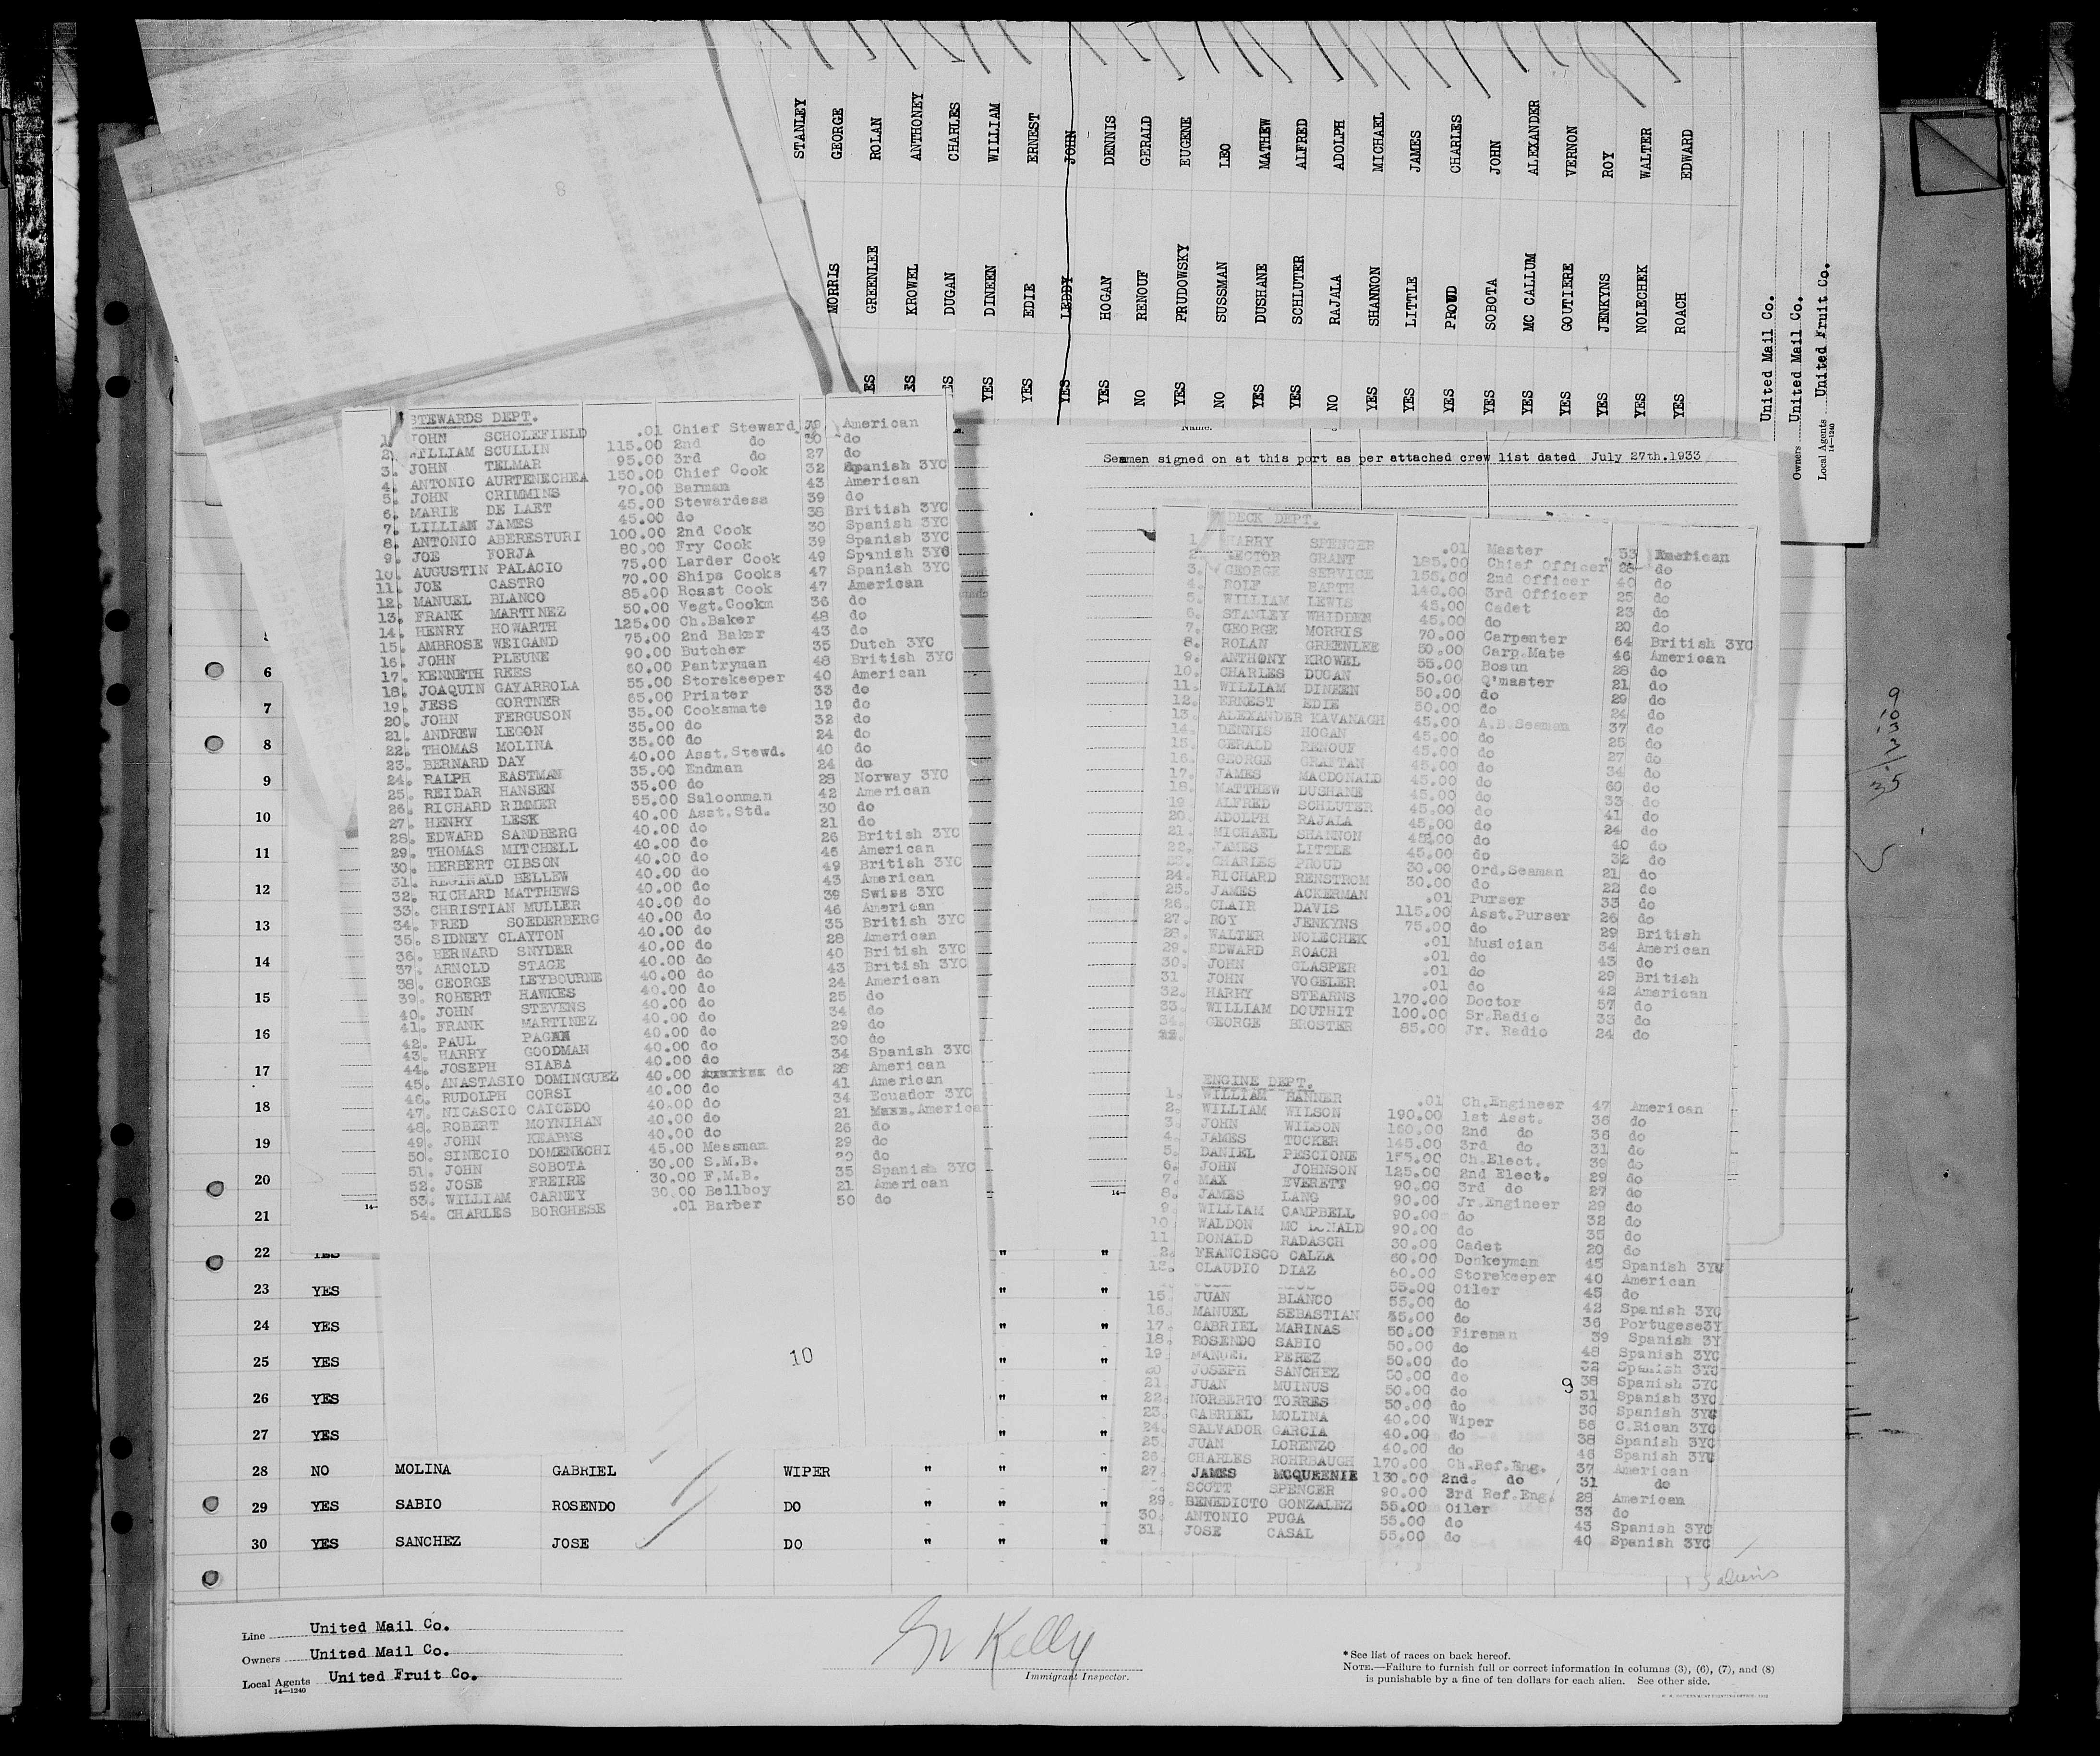 STANLEY
MORRIS GEORGE
ES GREENLEE ROLAN
ES KROWEL ANTHONEY
ES DUGAN CHARLES
YES DINEEN WILLIAM
YES EDIE ERNEST
YES LEDDY JOHN
YES HOGAN DENNIS
NO RENOUF GERALD
YES PRUDOWSKY EUGENE
NO SUSSMAN LEO
YES DUSHANE MATHEW
YES SCHLUTER ALFRED
NO RAJALA ADOLPH
YES SHANNON MICHAEL
YES LITTLE JAMES
YES PROUD CHARLES
YES SOBOTA JOHN
YES MC CALLUM ALEXANDER
YES GOUTIERE VERNON
YES JENKYNS ROY
YES NOLECHEK WALTER
YES ROACH EDWARD
United Mail Co.
Owners United Mail Co.
Local Agents United Fruit Co.
14-1240
Name.
Seamen signed on at this port as per attached crew list dated July 27th.1933
STEWARDS DEPT.
1. JOHN SCHOLEFIELD .01 Chief Steward 39 American
2. WILLIAM SCULLIN 115.00 2nd do 30 do
3. JOHN TELMAR 95.00 3rd do 27 do
4. ANTONIO AURTENECHEA 150.00 Chief Cook 32 Spanish 3YC
5. JOHN CRIMMINS 70.00 Barman 43 American
6. MARIE DE LAET 45.00 Stewardess 39 do
7. LILLIAN JAMES 45.00 do 38 British 3YC
8. ANTONIO ABERESTURI 100.00 2nd Cook 30 Spanish 3YC
9. JOE FORJA 80.00 Fry Cook 39 Spanish 3YC
10. AUGUSTIN PALACIO 75.00 Larder Cook 49 Spanish 3YC
11. JOE CASTRO 70.00 Ships Cooks 47 Spanish 3YC
12. MANUEL BLANCO 85.00 Roast Cook 47 American
13. FRANK MARTINEZ 50.00 Vegt.Cookm 36 do
14. HENRY HOWARTH 125.00 Ch.Baker 48 do
15. AMBROSE WEIGAND 75.00 2nd Baker 43 do
16. JOHN PLEUNE 90.00 Butcher 35 Dutch 3YC
17. KENNETH REES 60.00 Pantryman 48 British 3YC
18. JOAQUIN GAYARROLA 55.00 Storekeeper 40 American
19. JESS GORTNER 65.00 Printer 33 do
20. JOHN FERGUSON 35.00 Cooksmate 19 do
21. ANDREW LEGON 35.00 do 32 do
22. THOMAS MOLINA 35.00 do 24 do
23. BERNARD DAY 40.00 Asst.Stewd. 40 do
24. RALPH EASTMAN 35.00 Endman 24 do
25. REIDAR HANSEN 35.00 do 28 Norway 3YC
26. RICHARD RIMMER 55.00 Saloonman 42 American
27. HENRY LESK 40.00 Asst.Std. 30 do
28. EDWARD SANDBERG 40.00 do 21 do
29. THOMAS MITCHELL 40.00 do 26 British 3YC
30. HERBERT GIBSON 40.00 do 46 American
31. REGINALD BELLEW 40.00 do 49 British 3YC
32. RICHARD MATTHEWS 40.00 do 43 American
33. CHRISTIAN MULLER 40.00 do 39 Swiss 3YC
34. FRED SOEDERBERG 40.00 do 46 American
35. SIDNEY CLAYTON 40.00 do 35 British 3YC
36. BERNARD SNYDER 40.00 do 28 American
37. ARNOLD STAGE 40.00 do 40 British 3YC
38. GEORGE LEYBOURNE 40.00 do 43 British 3YC
39. ROBERT HAWKES 40.00 do 24 American
40. JOHN STEVENS 40.00 do 25 do
41. FRANK MARTINEZ 40.00 do 34 do
42. PAUL PAGAN 40.00 do 29 do
43. HARRY GOODMAN 40.00 do 30 do
44. JOSEPH SIABA 40.00 do 34 Spanish 3YC
45. ANASTASIO DOMINGUEZ 40.00 do 28 American
46. RUDOLPH CORSI 40.00 do 41 American
47. NICASCIO CAICEDO 40.00 do 34 Ecuador 3YC
48. ROBERT MOYNIHAN 40.00 do 21 America
49. JOHN KEARNS 40.00 do 26 do
50. SINECIO DOMENECHI 45.00 Messman 29 do
51. JOHN SOBOTA 30.00 S.M.B. 20 do
52. JOSE FREIRE 30.00 F.M.B. 35 Spanish 3YC
53. WILLIAM CARNEY 30.00 Bellboy 21 American
54. CHARLES BORGHESE .01 Barber 50 do
10
DECK DEPT.
1. HARRY SPENCER .01 Master 53 American
2. HECTOR GRANT 185.00 Chief Officer do
3. GEORGE SERVICE 155.00 2nd Officer 40 do
4. ROLF BARTH 140.00 3rd Officer 25 do
5. WILLIAM LEWIS 45.00 Cadet 23 do
6. STANLEY WHIDDEN 45.00 do 20 do
7. GEORGE MORRIS 70.00 Carpenter 64 British 3YC
8. ROLAN GREENLEE 50.00 Carp.Mate 46 American
9. ANTHONY KROWEL 55.00 Bosun 28 do
10. CHARLES DUGAN 50.00 Q'master 21 do
11. WILLIAM DINEEN 50.00 do 29 do
12. ERNEST EDIE 50.00 do 24 do
13. ALEXANDER KAVANAGH 45.00 A.B.Seaman 37 do
14. DENNIS HOGAN 45.00 do 25 do
15. GERALD RENOUF 45.00 do 27 do
16. GEORGE GRAFTAN 45.00 do 34 do
17. JAMES MACDONALD 45.00 do 60 do
18. MATTHEW DUSHANE 45.00 do 33 do
19. ALFRED SCHLUTER 45.00 do 41 do
20. ADOLPH RAJALA 45.00 do 24 do
21. MICHAEL SHANNON 45.00 do 40 do
22. JAMES LITTLE 45.00 do 32 do
23. CHARLES PROUD 30.00 Ord.Seaman 21 do
24. RICHARD RENSTROM 30.00 do 22 do
25. JAMES ACKERMAN .01 Purser 33 do
26. CLAIR DAVIS 115.00 Asst.Purser 26 do
27. ROY JENKYNS 75.00 do 29 British
28. WALTER NOLECHEK .01 Musician 34 American
29. EDWARD ROACH .01 do 43 do
30. JOHN GLASPER .01 do 29 British
31 JOHN VOGELER .01 do 42 American
32. HARRY STEARNS 170.00 Doctor 57 do
33. WILLIAM DOUTHIT 100.00 Sr.Radio 33 do
34. GEORGE BROSTER 85.00 Jr. Radio 24 do
ENGINE DEPT.
1. WILLIAM BANNER .01 Ch.Engineer 47 American
2. WILLIAM WILSON 190.00 1st Asst. 36 do
3. JOHN WILSON 160.00 2nd do 36 do
4. JAMES TUCKER 145.00 3rd do 31 do
5. DANIEL PESCIONE 155.00 Ch.Elect. 39 do
6. JOHN JOHNSON 125.00 2nd Elect. 29 do
7. MAX EVERETT 90.00 3rd do 27 do
8. JAMES LANG 90.00 Jr.Engineer 29 do
9. WILLIAM CAMPBELL 90.00 do 32 do
10 WALDON MC DONALD 90.00 do 35 do
11 DONALD RADASCH 30.00 Cadet 20 do
12. FRANCISCO CALZA 60.00 Donkeyman 45 Spanish 3YC
13. CLAUDIO DIAZ 60.00 Storekeeper 40 American
55.00 Oiler 45 do
15. JUAN BLANCO 55.00 do 42 Spanish 3YC
16. MANUEL SEBASTIAN 55.00 do 36 Portugese3Y
17. GABRIEL MARINAS 50.00 Fireman 39 Spanish 3Y
18. ROSENDO SABIO 50.00 do 48 Spanish 3YC
19. MANUEL PEREZ 50.00 do 32 Spanish 3YC
20 JOSEPH SANCHEZ 50.00 do 38 Spanish 3YC
21 JUAN MUINUS 50.00 do 31 Spanish 3YC
22. NORBERTO TORRES 50.00 do 30 Spanish 3YC
23. GABRIEL MOLINA 40.00 Wiper 56 C.Rican 3YC
24. SALVADOR GARCIA 40.00 do 38 Spanish 3YC
25. JUAN LORENZO 40.00 do 46 Spanish 3YC
26. CHARLES ROHRBAUGH 170.00 Ch.Ref.Eng. 37 American
27. JAMES MCQUEENIE 130.00 2nd. do 31 do
SCOTT SPENCER 90.00 3rd Ref.Eng. 28 American
29. BENEDICTO GONZALEZ 55.00 Oiler 33 do
30. ANTONIO PUGA 55.00 do 43 Spanish 3YC
31. JOSE CASAL 55.00 do 40 Spanish 3YC
9
6
7
8
9
10
11
12
13
14
15
16
17
18
19
20
21
22 YES " "
23 YES " "
24 YES " "
25 YES " "
26 YES " "
27 YES " "
28 NO MOLINA GABRIEL WIPER " " "
29 YES SABIO ROSENDO DO " " "
30 YES SANCHEZ JOSE DO " " "
Line United Mail Co.
Owners United Mail Co.
Local Agents United Fruit Co.
14-1240
Kelly
Immigrant Inspector.
* See list of races on back hereof.
NOTE.—Failure to furnish full or correct information in columns (3), (6), (7), and (8)
is punishable by a fine of ten dollars for each alien. See other side.